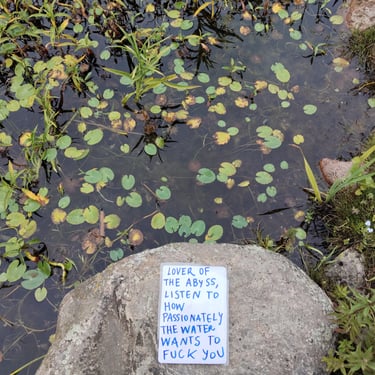 LOVER OF
THE ABYSS,
LISTEN TO
HOW
PASSIONATELY
THE WATER
WANTS TO
FUCK YOU